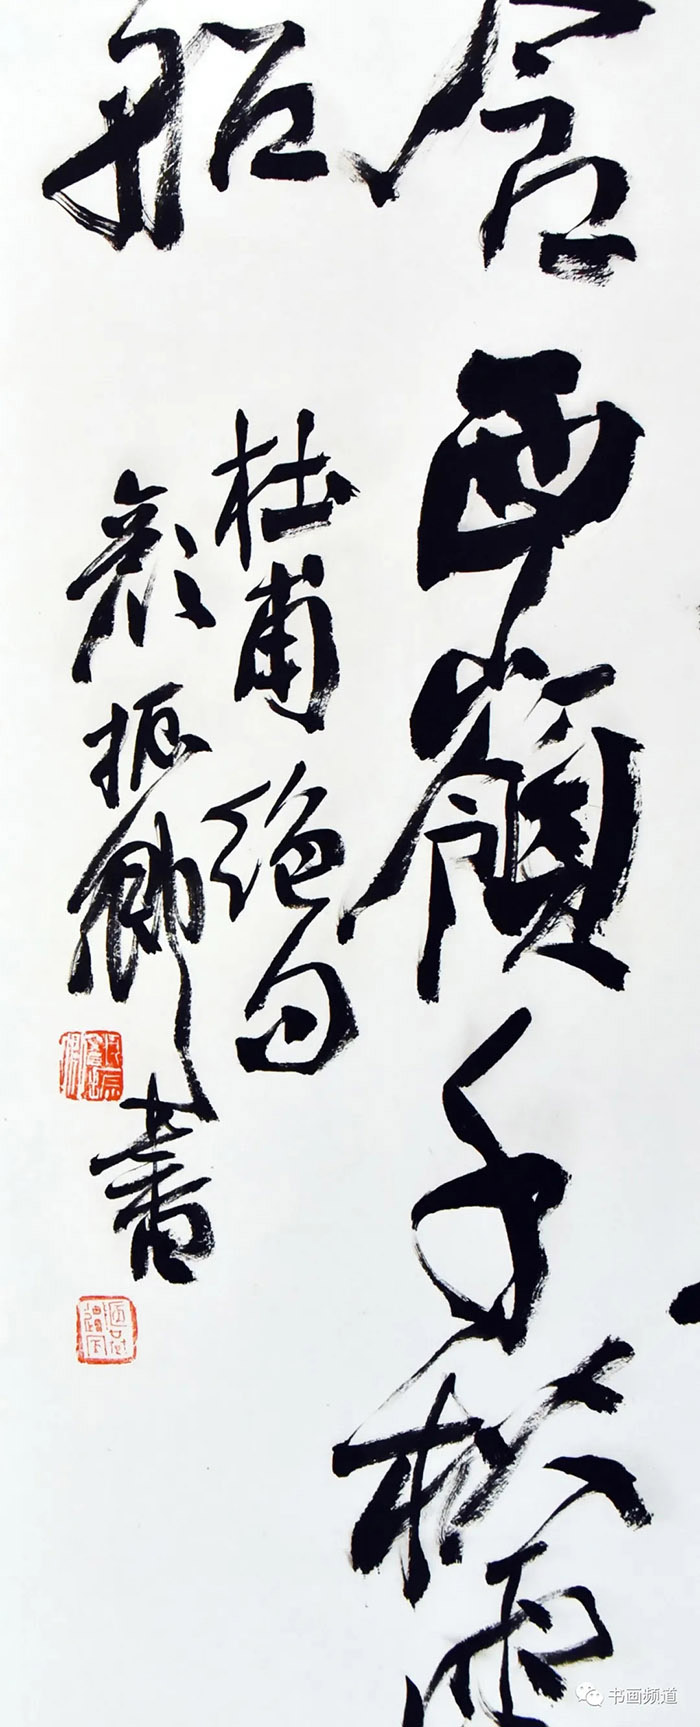 含西嶺千秋雪
船
杜甫絕句
颜振卿書
书画频道